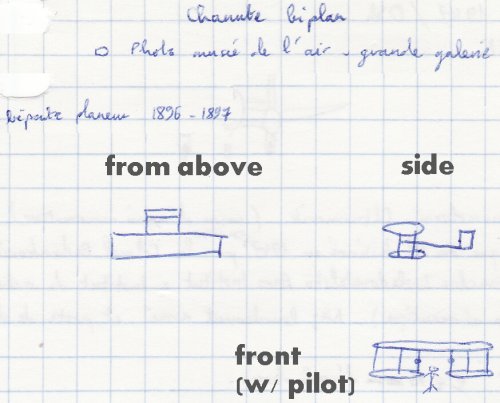 Chanute biplan
Photo musée de l'air - grande galerie
planeur 1896 - 1897
from above
side
front
(w/ pilot)